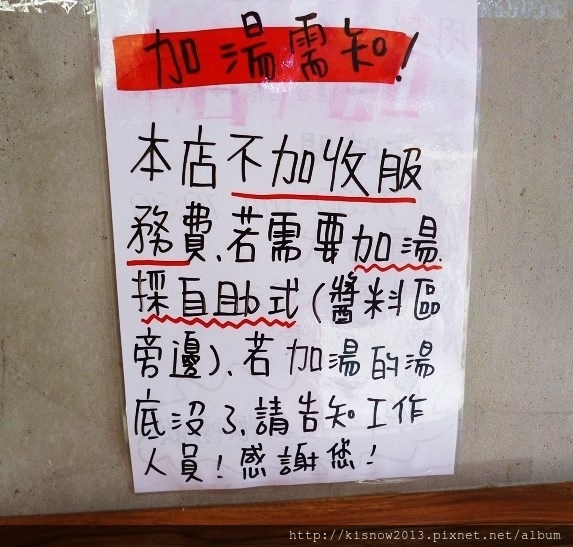 加湯需知!
本店不加收服
務費、若需要加湯、
採自助式(醬料區
旁邊)、若加湯的湯
底沒了、請告知工作
人員!感謝您!
http://kisnow2013.pixnet.net/album